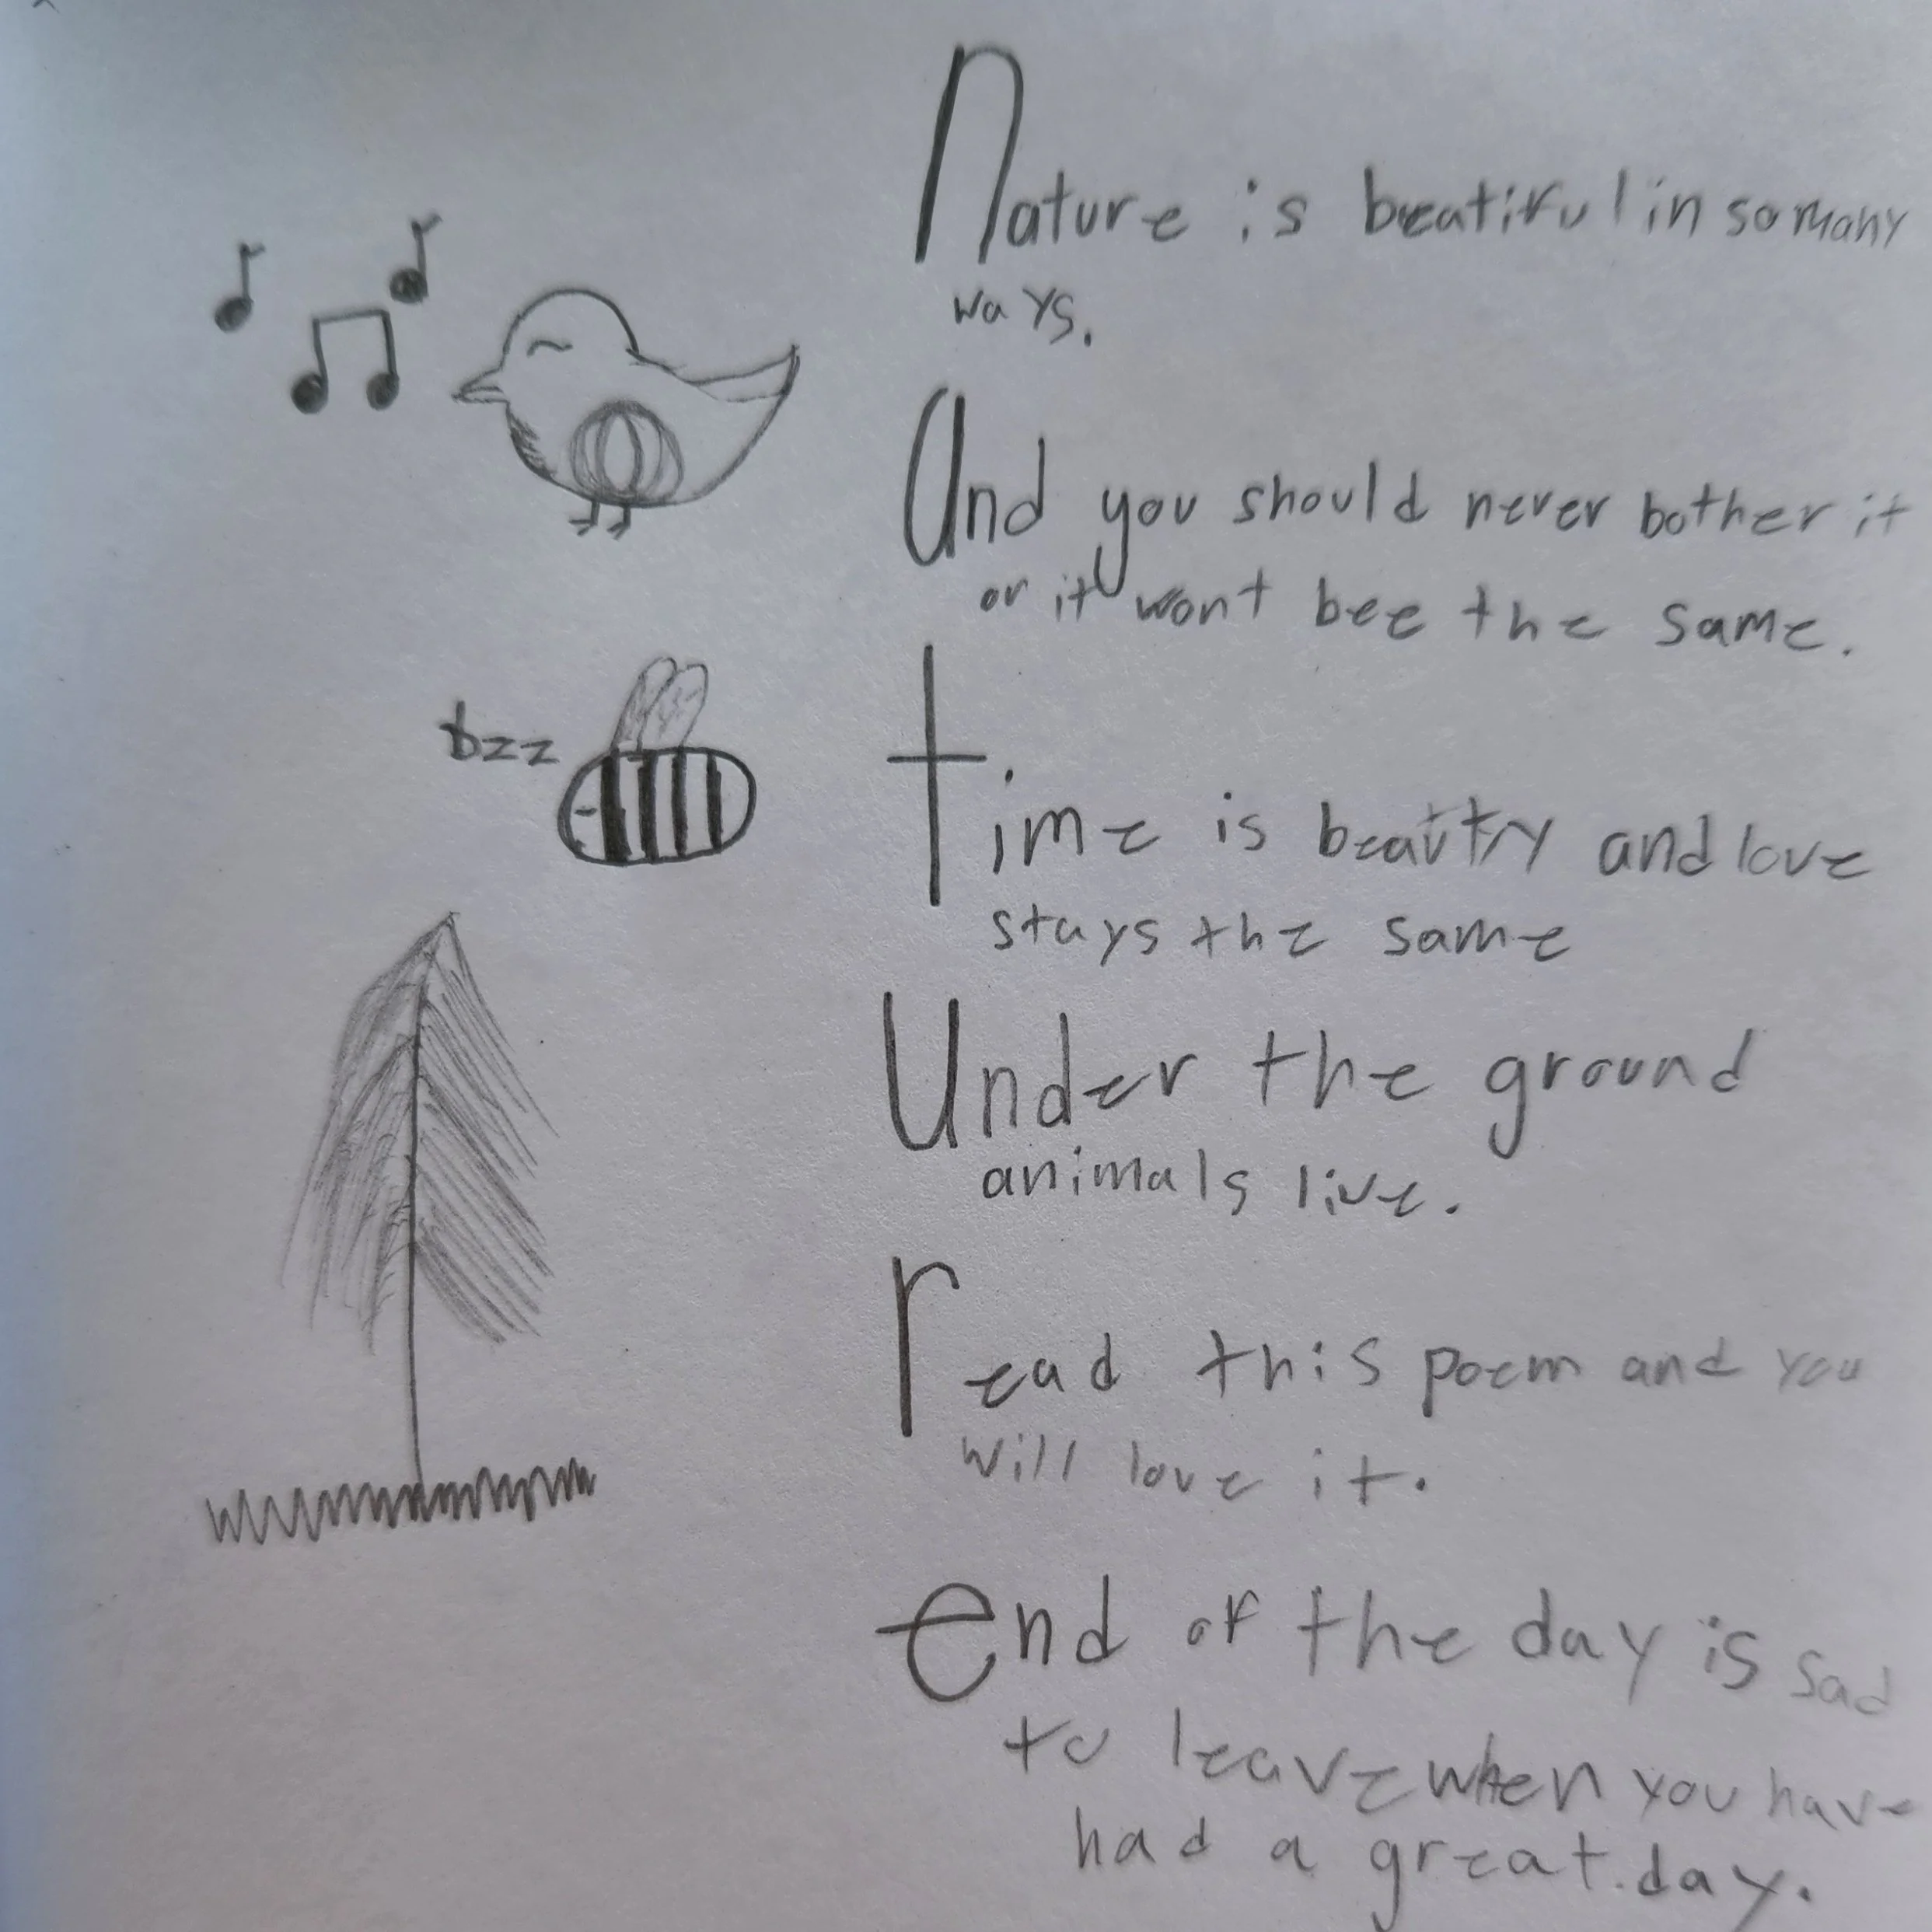 Nature is beatiful in so many
ways.
And you should never bother it
or it wont bee the same.
bzz
time is beautry and love
stays the same
Under the ground
animals live.
read this poem and you
will love it.
end of the day is sad
to leave when you have
had a great.day.